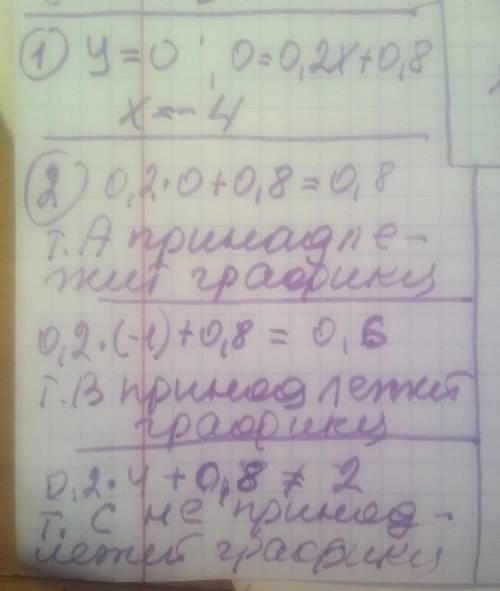 1) y=0; 0=0,2x+0,8
x=-4
2) 0,2·0+0,8=0,8
т. А принадле-
жит графику
0,2·(-1)+0,8=0,6
т. В принадлежит
графику
0,2·4+0,8≠2
т. С не принад-
лежит графику